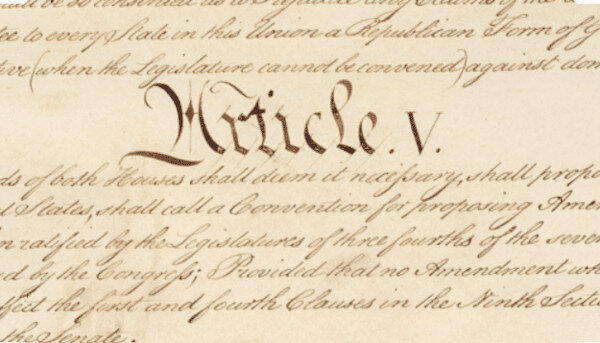 be so construed as to Prejudice any Claims of the
to every State in this Union a Republican Form of
(when the Legislature cannot be convened) against
Article. V.
of both Houses shall deem it necessary, shall
States, shall call a Convention for proposing
ratified by the Legislatures of three fourths of the
by the Congress; Provided that no Amendment
the first and fourth Clauses in the Ninth
the Senate.